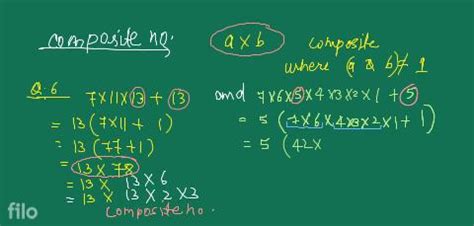 composite no.
a×b
composite
where (a & b) ≠ 1
Q.6
7×11×13 + 13
= 13 (7×11 + 1)
= 13 (77+1)
= 13 × 78
= 13 × 13×6
= 13 × 13×2×3
composite no.
and 7×6×5×4×3×2×1 + 5
= 5 (7×6×4×3×2×1 + 1)
= 5 (42×
filo